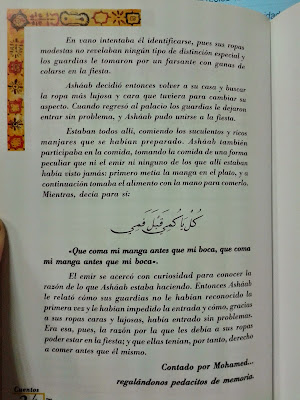 En vano intentaba él identificarse, pues sus ropas
modestas no revelaban ningún tipo de distinción especial y
los guardias le tomaron por un farsante con ganas de
colarse en la fiesta.
Asháab decidió entonces volver a su casa y buscar
la ropa más lujosa y cara que tuviera para cambiar su
aspecto. Cuando regresó al palacio los guardias le dejaron
entrar sin problema, y Asháab pudo unirse a la fiesta.
Estaban todos allí, comiendo los suculentos y ricos
manjares que se habían preparado. Asháab también
participaba en la comida, tomando la comida de una forma
peculiar que ni el emir ni ninguno de los que allí estaban
había visto jamás: primero metía la manga en el plato, y a
continuación tomaba el alimento con la mano para comerlo.
Mientras, decía para sí:
كُلْ يَا كُمِّي قَبْلَ فَمِي
«Que coma mi manga antes que mi boca, que coma
mi manga antes que mi boca».
El emir se acercó con curiosidad para conocer la
razón de lo que Asháab estaba haciendo. Entonces Asháab
le relató cómo sus guardias no le habían reconocido la
primera vez y le habían impedido la entrada y cómo, gracias
a sus ropas caras y lujosas, había entrado sin problemas.
Era esa, pues, la razón por la que les debía a sus ropas
poder estar en la fiesta; y que ellas tenían, por tanto, derecho
a comer antes que él mismo.
Contado por Mohamed...
regalándonos pedacitos de memoria.
Cuentos